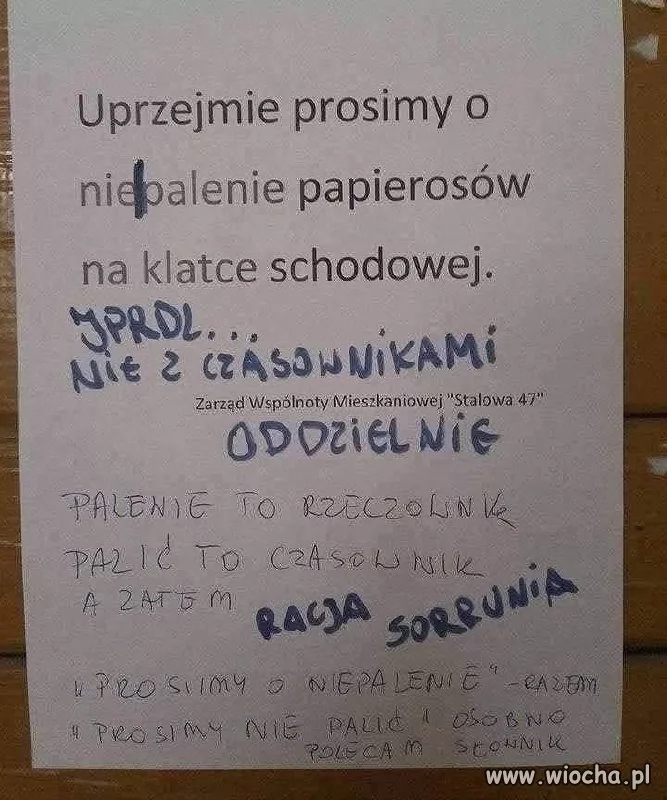 Uprzejmie prosimy o
niepalenie papierosów
na klatce schodowej.
JPRDL...
NIE Z CZASOWNIKAMI
Zarząd Wspólnoty Mieszkaniowej "Stalowa 47"
ODDZIELNIE
PALENIE TO RZECZOWNIK
PALIĆ TO CZASOWNIK
A ZATEM
RACJA SORRUNIA
"PROSIMY O NIEPALENIE" - RAZEM
"PROSIMY NIE PALIĆ" OSOBNO
POLECAM SŁOWNIK
www.wiocha.pl